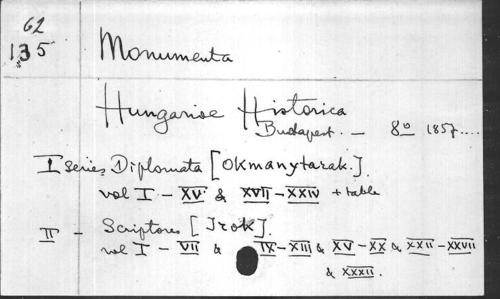 62
135
Monumenta
Hungariae Historica
Budapest. — 8º 1857....
I series Diplomata [Okmanytarak.].
vol I - XV & XVII - XXIV + table
II - Scriptores [Irok].
vol I - VII & IX - XIII & XV - XX & XXII - XXVII
& XXXII.